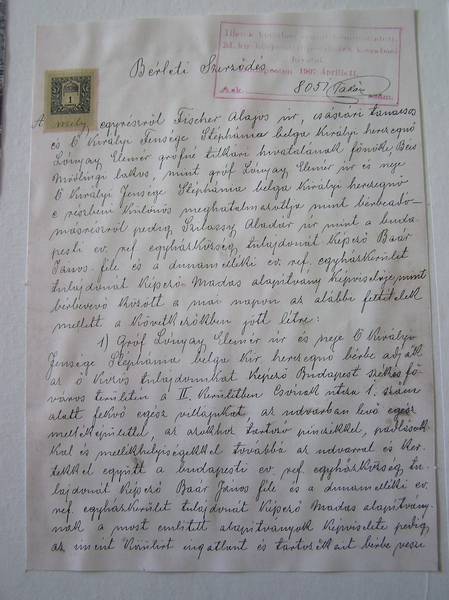 Bérleti Szerződés
1907 április
8057
1
A mely egyrészről Fischer Alajos úr, császári tanácsos
és Ő Királyi Fensége Stephánia belga királyi hercegnő
Lónyay Elemér grófné titkári hivatalának főnöke, Bécs
lakos, mint gróf Lónyay Elemér úr és neje
Ő Királyi Fensége Stephánia belga királyi hercegnő
e részben különös meghatalmazottja mint bérbeadó
másrészről pedig Szilassy Aladár úr mint a buda-
pesti ev. ref. egyházközség tulajdonát képező Baár
János-féle és a dunamelléki ev. ref. egyházkerület
tulajdonát képező Madas alapítvány képviselője mint
bérbevevő között a mai napon az alábbi feltételek
mellett a következőkben jött létre:
1) Gróf Lónyay Elemér úr és neje Ő Királyi
Fensége Stephánia belga kir. hercegnő bérbe adják
az ő közös tulajdonukat képező Budapest székes fő-
város területén a II. kerületben utca 1. szám
alatt fekvő egész villájukat, az udvarban levő egész
melléképülettel, az azokhoz tartozó pincékkel, padlások-
kal és mellékhelyiségekkel továbbá az udvarral és ker-
tekkel együtt a budapesti ev. ref. egyházközség tu-
lajdonát képező Baár János féle és a dunamelléki ev.
ref. egyházkerület tulajdonát képező Madas alapítvány-
nak a most említett alapítványok képviselete pedig
az imént körülírt ingatlant és tartozékait bérbe veszi